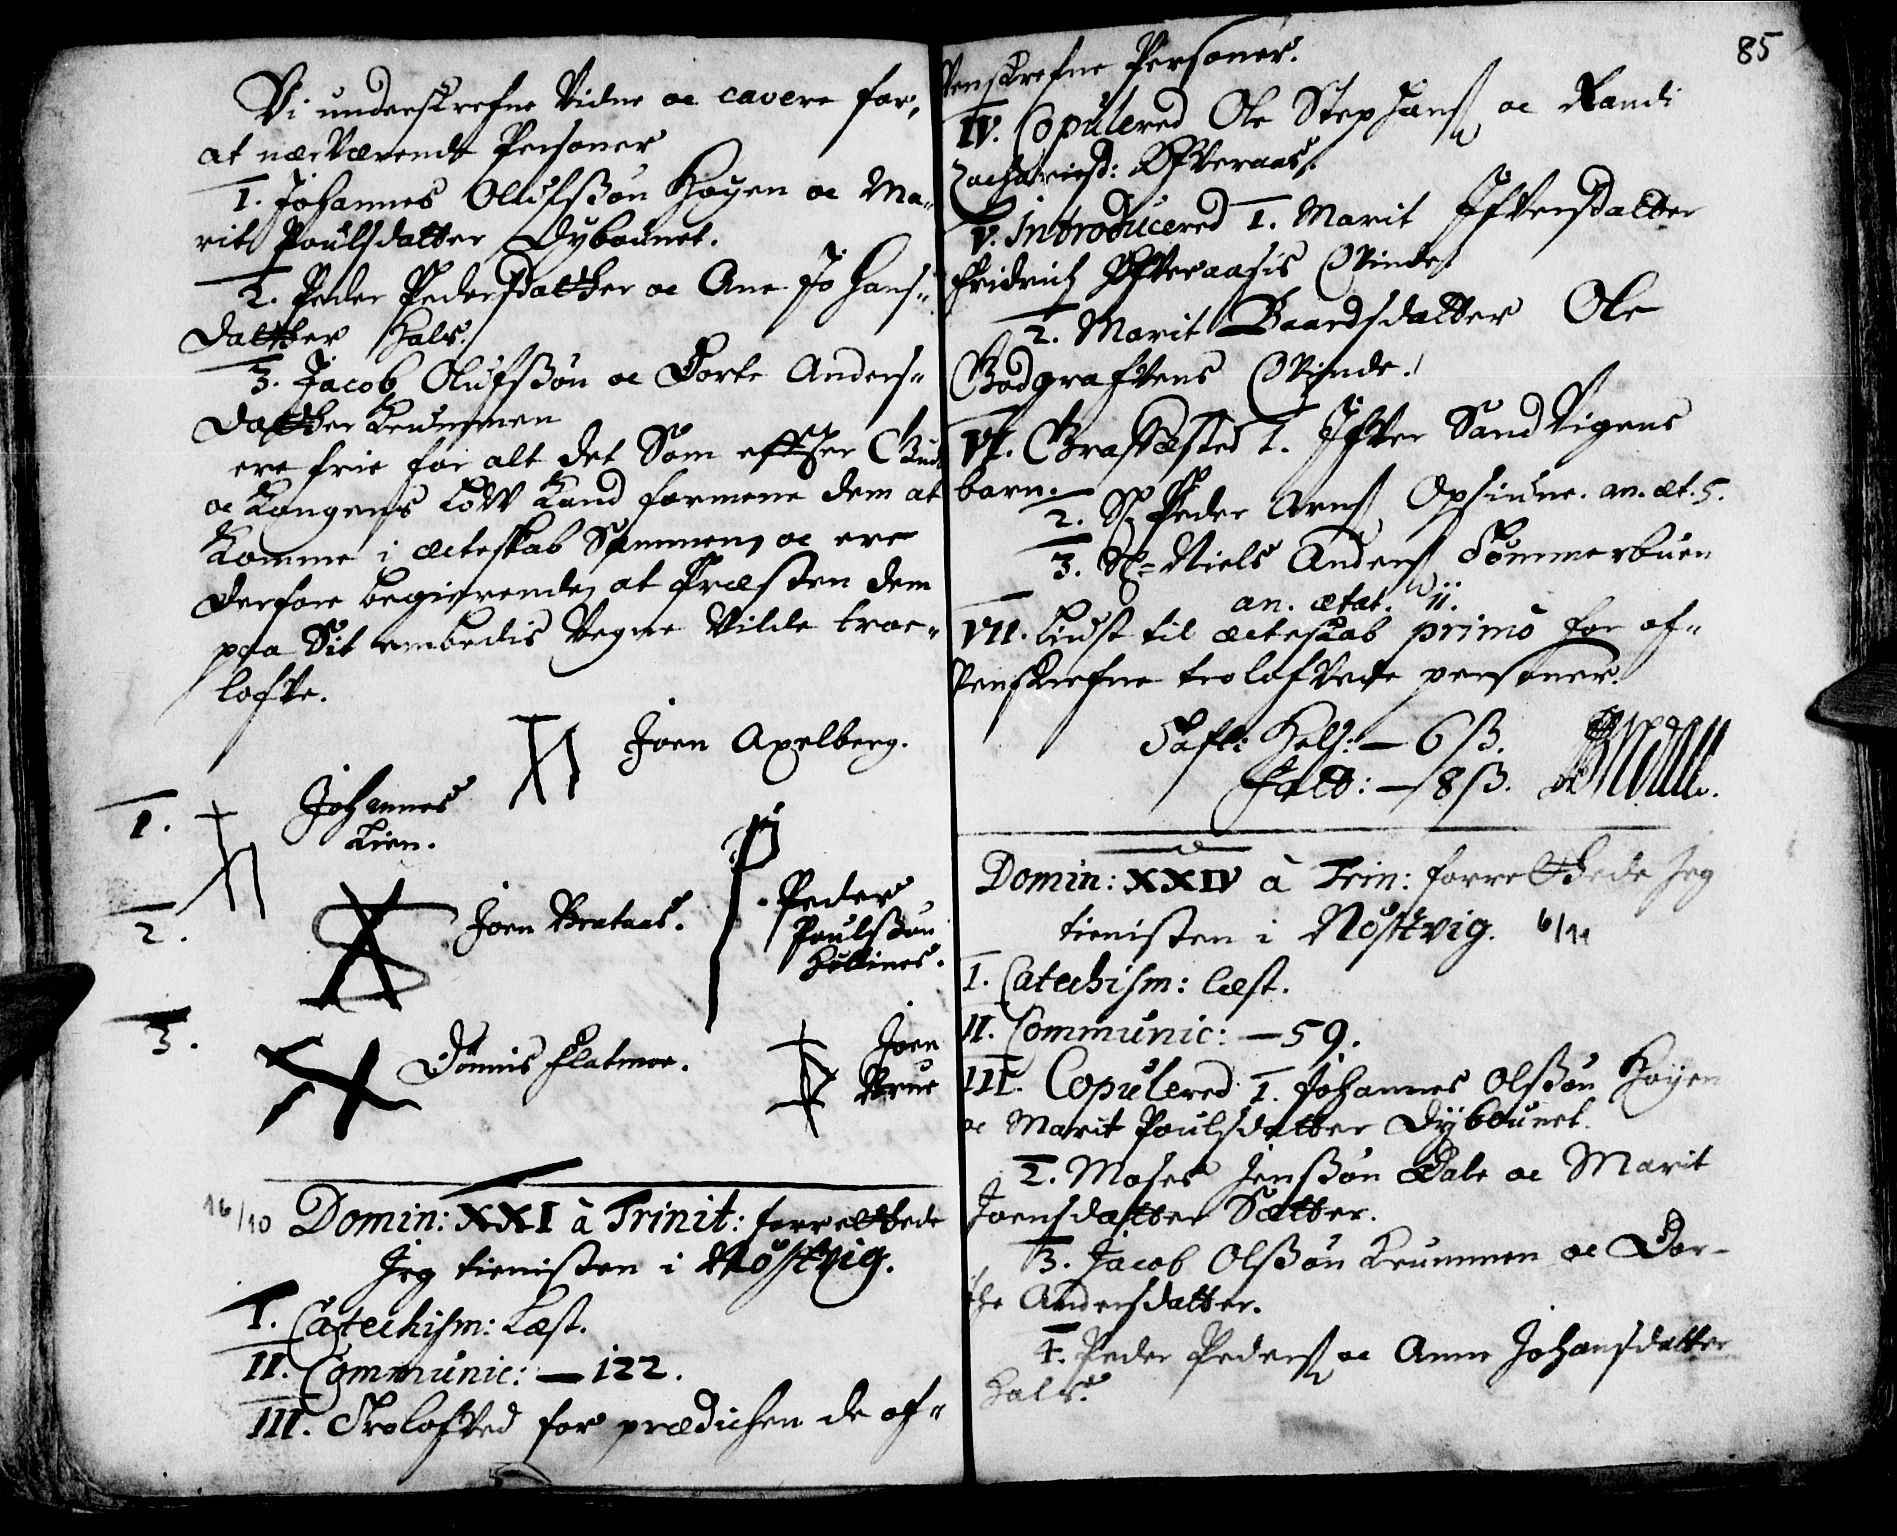 Vi underskrefne Vidne oc cavere for,
at nærværende Personer
1. Johannes Olufsøn Høyen oc Ma-
rit Poulsdatter Dybounet.
2. Peder Pedersdatter oc Ane Johans-
datter Hals.
3. Jacob Olufsøn oc Dorte Anders-
datter Krummen
ere frie for alt det Som effter Guds
oc Kongens Low Kand formene dem at
Komme i ecteskab Sammen, oc ere
derfore begierende, at Præsten dem
paa Sit embedis Vegne Vilde troe-
lofve.
Joen Axelberg.
1. Johannes
Lien.
2. Joen Brataas. Peder
Poulsøn
3. Dønnis Flatmoe. Joen
Brue
16/10 Domin: XXI à Trinit: forrettede
Jeg tienisten i Nöstvig.
I. Catechism: Læst.
II. Communic: — 122.
III. Trolofved for prædichen de of-
85
venskrefne Personer.
IV. Copulered Ole Stephans oc Randi
Zachariesd: Øfveraas.
V. Introducered 1. Marit Ifversdatter
Fridrich Øfveraasis Qvinde.
2. Marit Baardsdatter Ole
Godgrafvens Qvinde.
VI. Graffæsted 1. Ifver Sandvigens
barn.
2. S. Peder Arns Opsiune. an. æt. 5.
3. S. Niels Anders Tömmerbuen
an. ætat. 11.
VII. Liust til ecteskab primò for of-
venskrefne trolofvede personer.
Tafl: Hels: — 6 ß.
Fatt: — 8 ß.
Domin: XXIV à Trin: forrettede Jeg
tienisten i Nöstvig. 6/11
I. Catechism: læst.
II. Communic: — 59.
III. Copulered 1. Johannes Olsøn Høyen
oc Marit Poulsdatter Dybounet.
2. Moses Jensøn Dale oc Marit
Joensdatter Sætter.
3. Jacob Olsøn Krummen oc Dor-
the Andersdatter.
4. Peder Peders oc Anne Johansdatter
Hals.